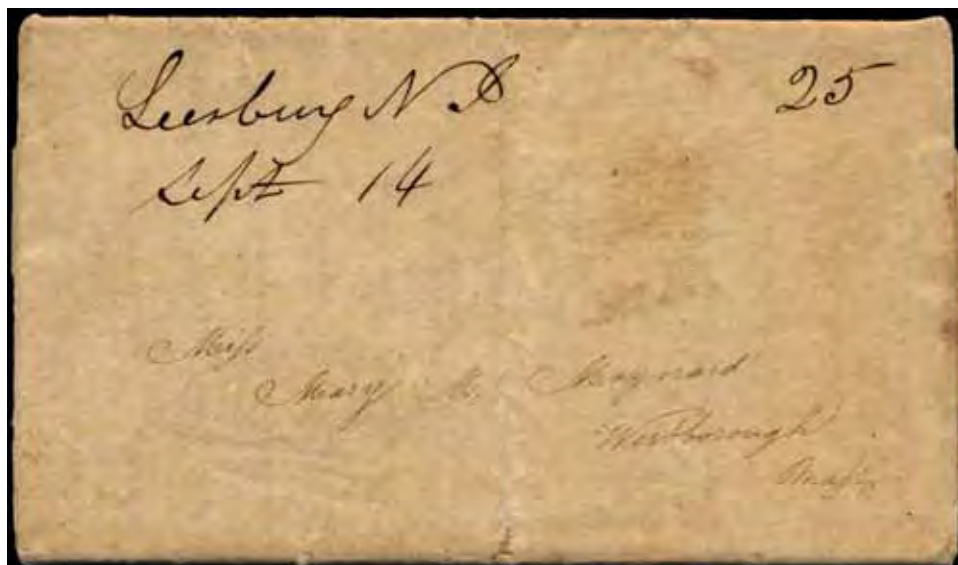 Leesburg N 25
Sept 14
Miſs
Mary M. Maynard
Westborough
Maſs.